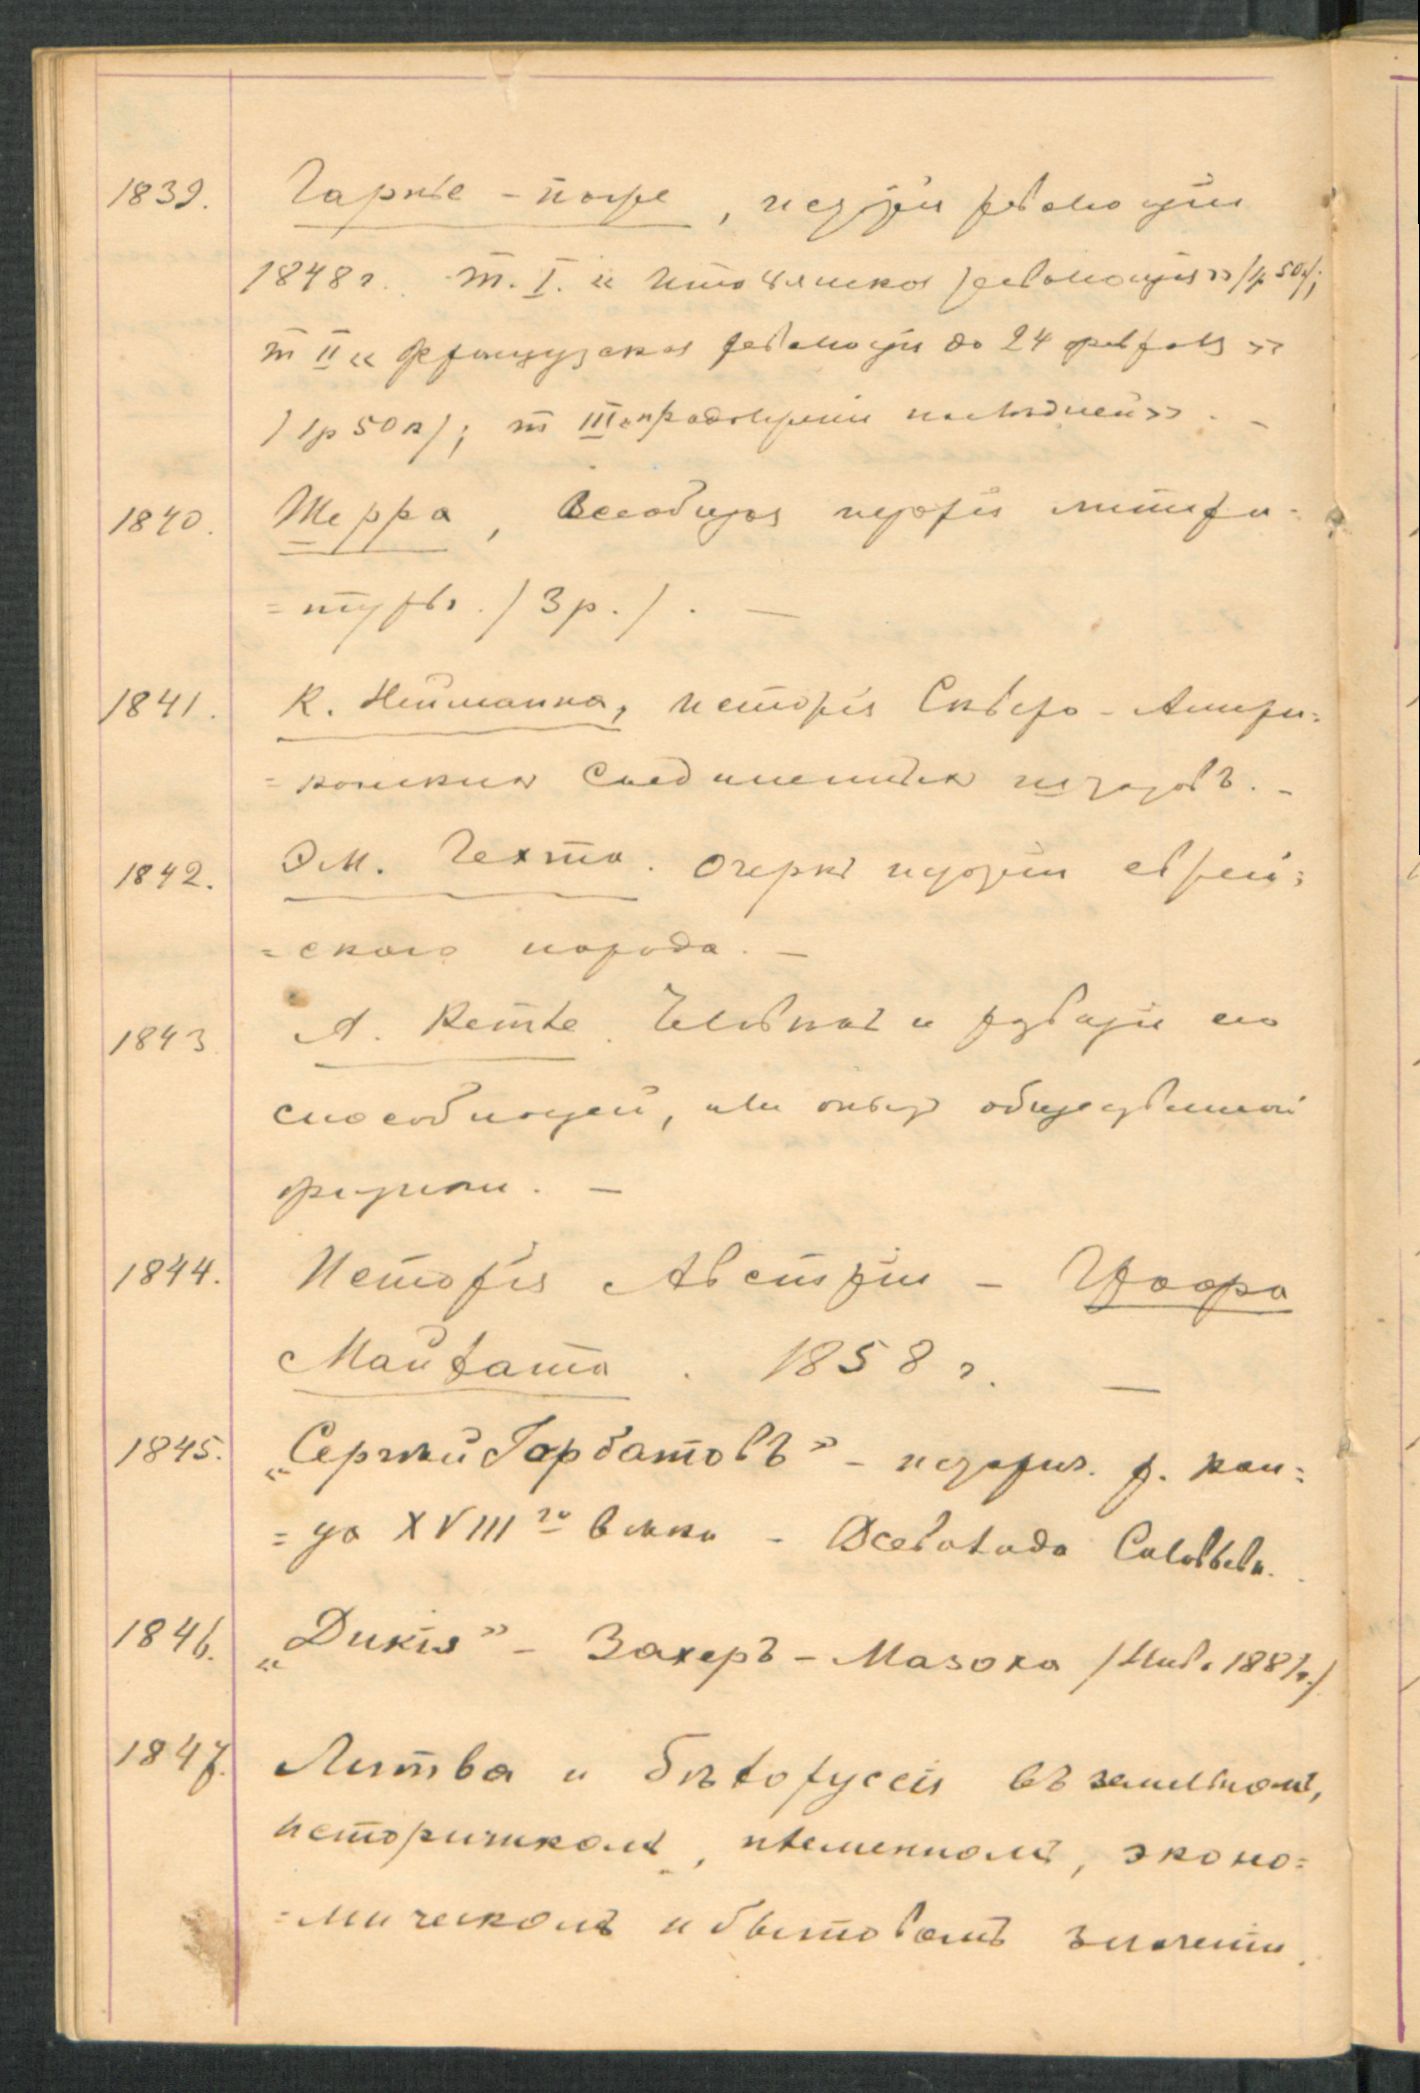 1839. Гарнье-Паже, исторія революціи
1848 г. т. I. «Итальянская революція» /1р 50к/;
т II «Французская революція до 24 февраля»
/1р 50к/; т III «продолженіе послѣдней». –
1840. Шерра, Всеобщая исторія литера=
=туры. /3р./. —
1841. К. Неймана, исторія Сѣверо-Амери=
=канскихъ Соединенныхъ штатовъ. –
1842. Эм. Гехта. Очеркъ исторіи еврей=
=скаго народа. –
1843 А. Кетле. Человѣкъ и развитіе его
способностей, или опытъ общественной
физики. –
1844. Исторія Австріи – Цфора
Майлата. 1858 г. —
1845. „Сергѣй Горбатовъ" – историч. р. кон=
=ца XVIII го вѣка – Всеволода Соловьева.
1846. „Дикія" – Захеръ-Мазоха /Нив. 1881г./
1847. Литва и Бѣлоруссія въ земельномъ,
историческомъ, племенномъ, эконо=
=мическомъ и бытовомъ значеніи.